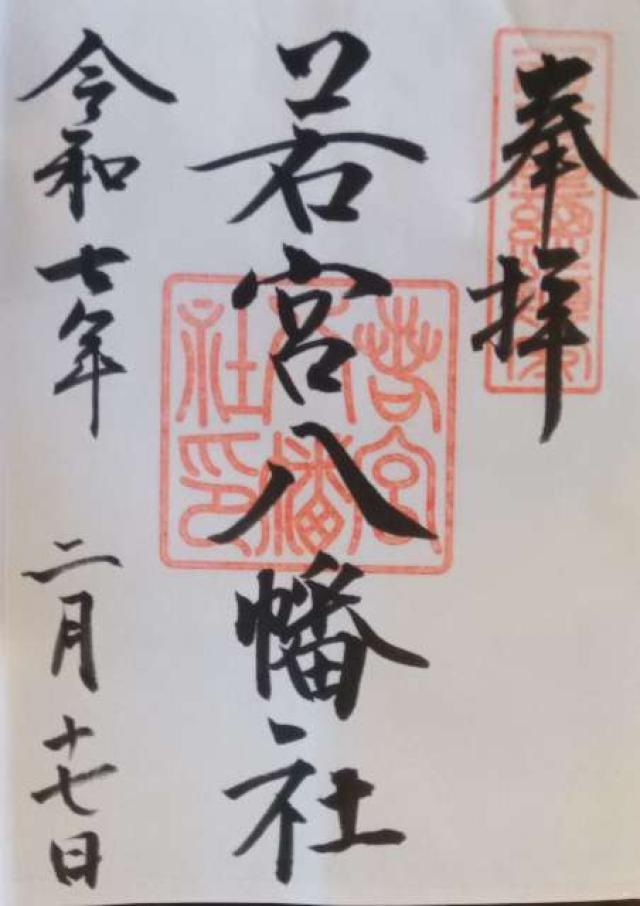 奉拝
若宮八幡社
令和七年 二月十七日
若宮八幡社印